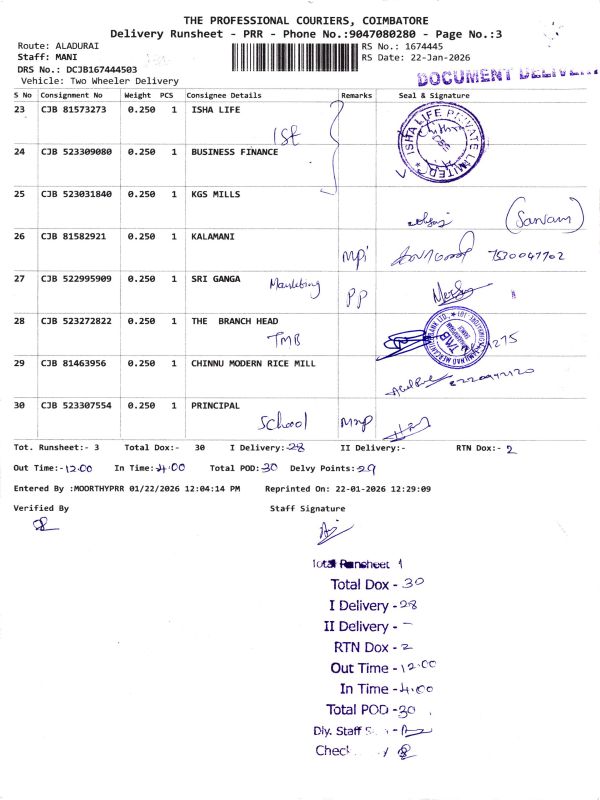 THE PROFESSIONAL COURIERS, COIMBATORE
Delivery Runsheet - PRR - Phone No.:9047080280 - Page No.:3
Route: ALADURAI
RS No.: 1674445
Staff: MANI
RS Date: 22-Jan-2026
DRS No.: DCJB167444503
Vehicle: Two Wheeler Delivery
DOCUMENT DELIVERY
S No Consignment No Weight PCS Consignee Details Remarks Seal & Signature
23 CJB 81573273 0.250 1 ISHA LIFE
ISHA LIFE PRIVATE LIMITED
1St
24 CJB 523309080 0.250 1 BUSINESS FINANCE
25 CJB 523031840 0.250 1 KGS MILLS
(Sanvam)
26 CJB 81582921 0.250 1 KALAMANI
mpi 7530047702
27 CJB 522995909 0.250 1 SRI GANGA
PP
28 CJB 523272822 0.250 1 THE BRANCH HEAD
TMB
TAMILNAD MERCANTILE BANK LTD.
TMB
29 CJB 81463956 0.250 1 CHINNU MODERN RICE MILL
30 CJB 523307554 0.250 1 PRINCIPAL
School
Tot. Runsheet:- 3 Total Dox:- 30 I Delivery:-28 II Delivery:- RTN Dox:- 2
Out Time:-12.00 In Time:-4.00 Total POD:-30 Delvy Points:-29
Entered By :MOORTHYPRR 01/22/2026 12:04:14 PM Reprinted On: 22-01-2026 12:29:09
Verified By Staff Signature
Total Runsheet 1
Total Dox - 30
I Delivery - 28
II Delivery - -
RTN Dox - 2
Out Time - 12.00
In Time - 4.00
Total POD - 30
Dly. Staff
Check